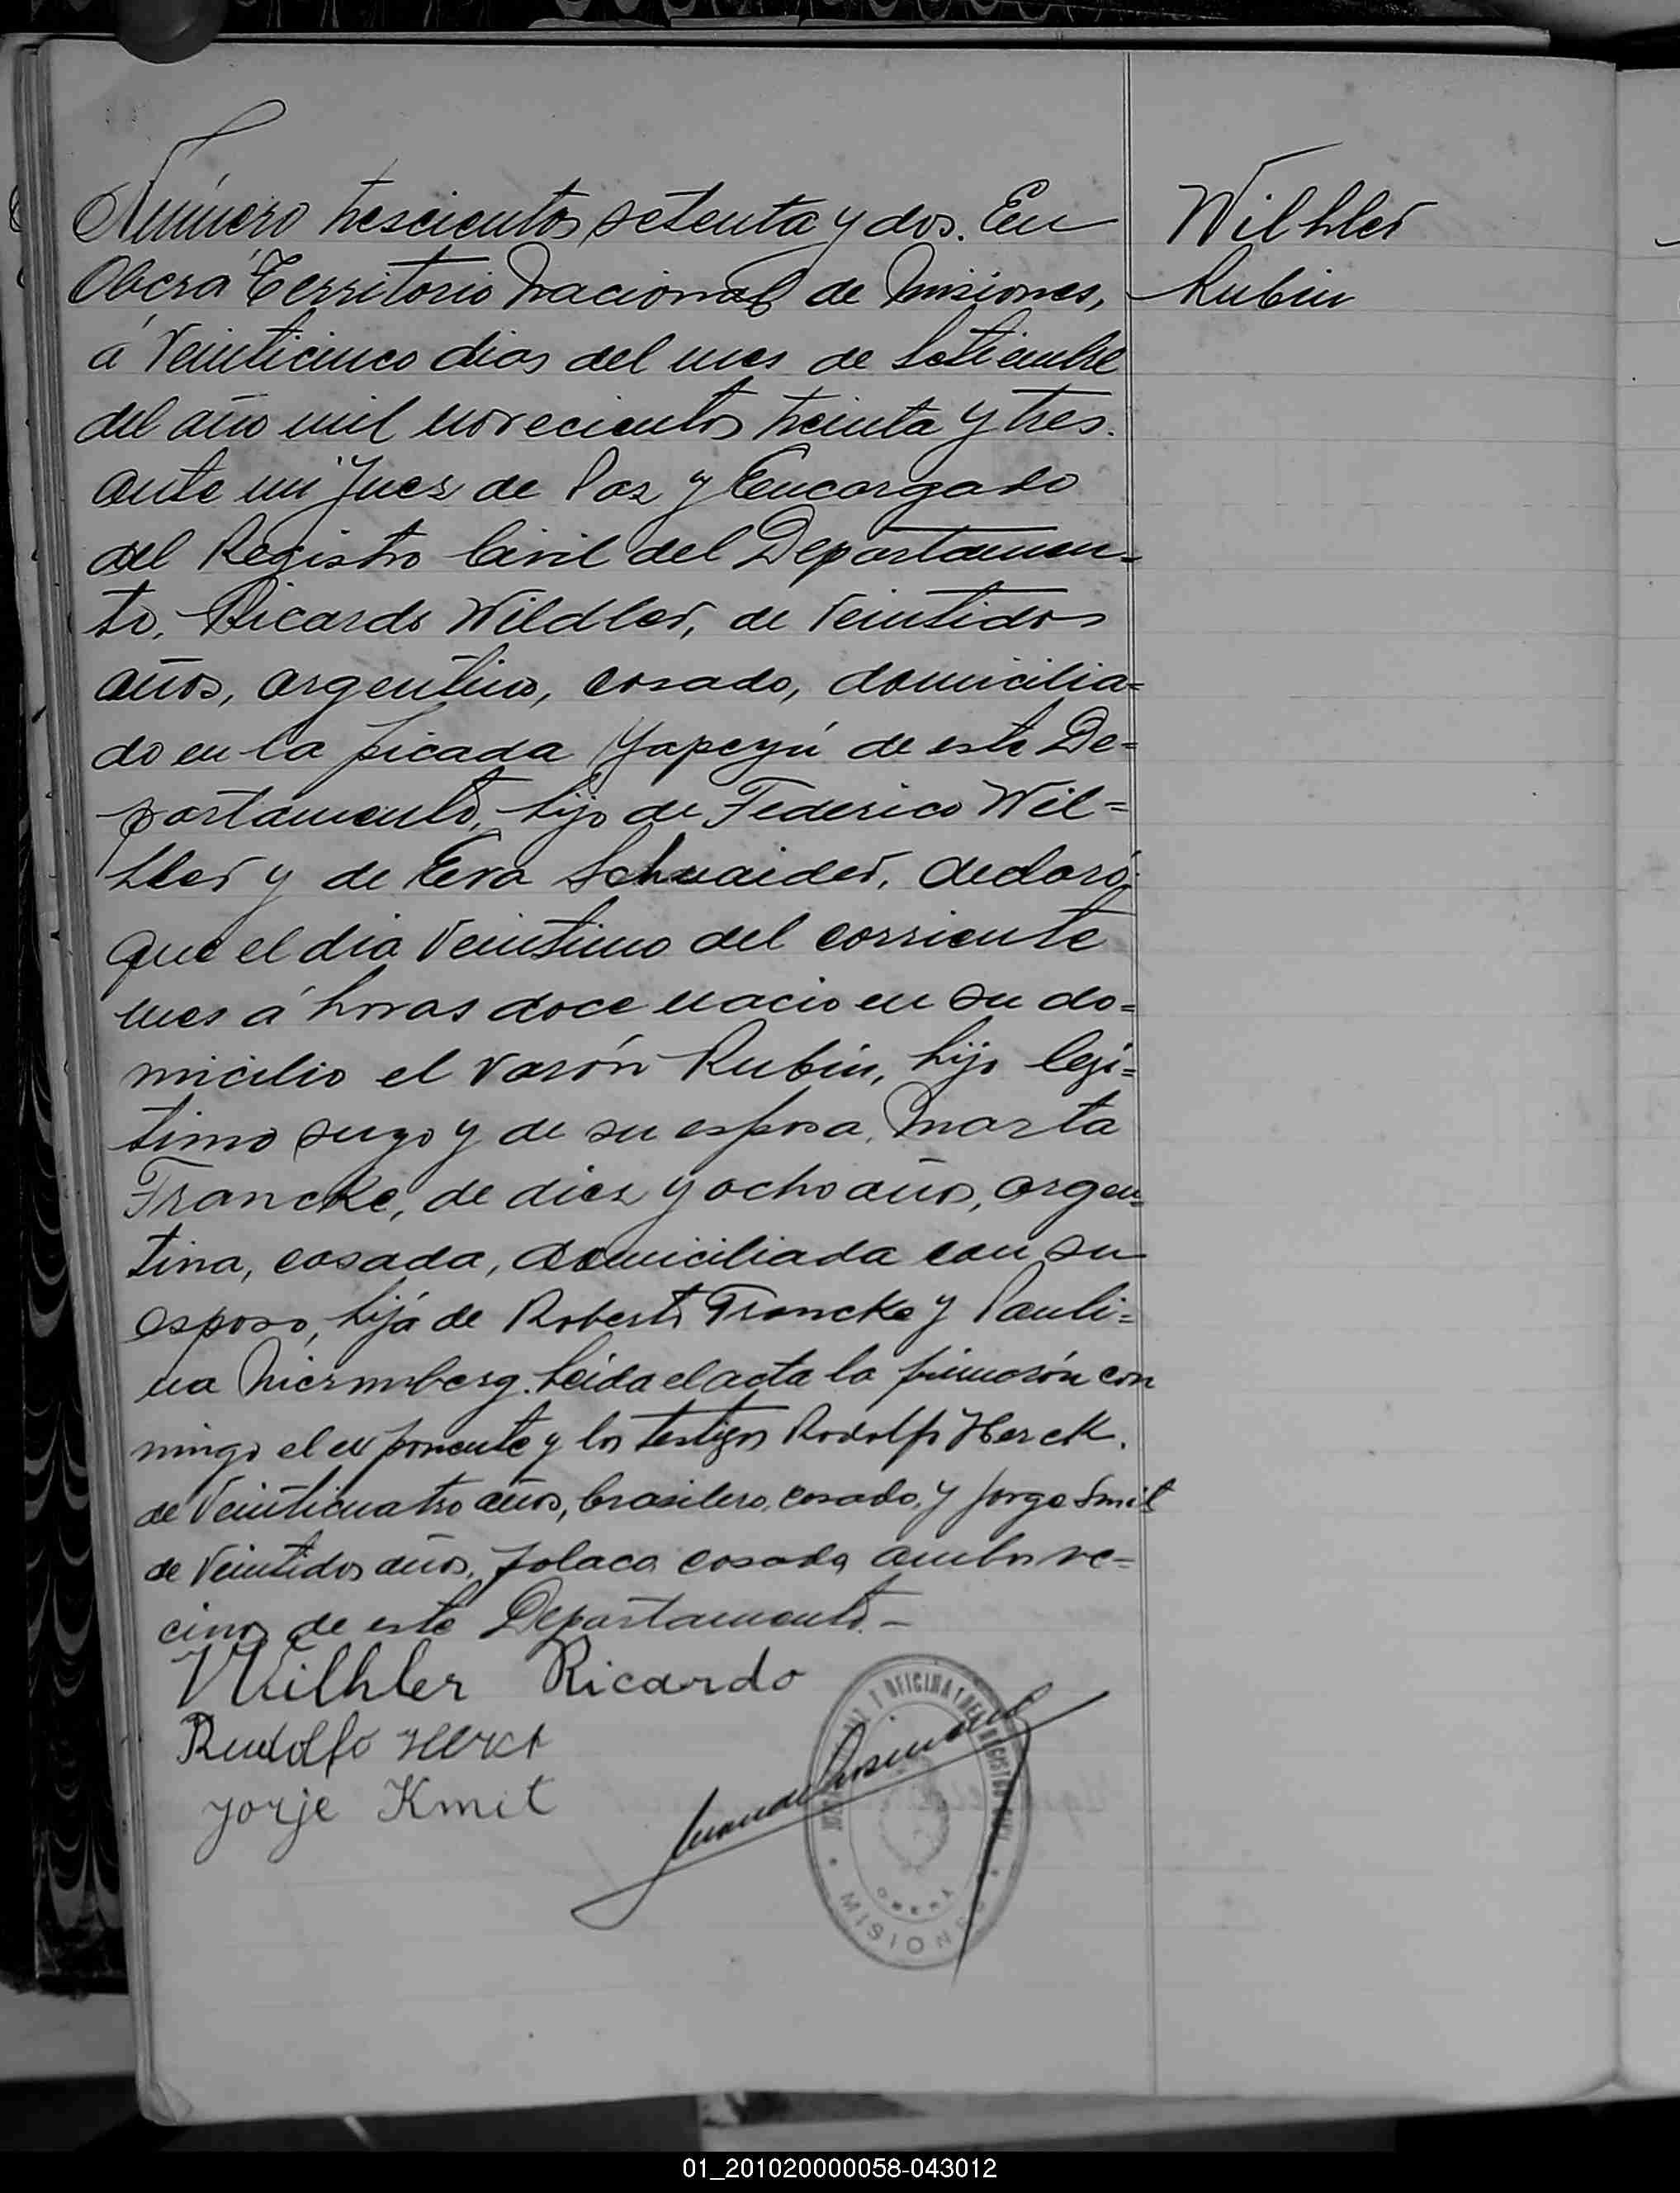 Número trescientos setenta y dos. En
Oberá Territorio Nacional de Misiones,
á veinticinco dias del mes de Setiembre
del año mil novecientos treinta y tres.
ante mi Juez de Paz y Encargado
del Registro Civil del Departamen=
to, Ricardo Wildler, de veintidos
años, argentino, casado, domicilia=
do en la picada Yapeyú de este De=
partamento, hijo de Federico Wil=
hler y de Eva Schnaider, declaró:
que el dia veintiuno del corriente
mes á horas doce nacio en su do=
micilio el varón Rubin, hijo legi=
timo suyo y de su esposa, Marta
Francke, de diez y ocho años, argen=
tina, casada, domiciliada con su
esposo, hija de Roberto Francke y Pauli=
na Leida el acta la firmarón con
migo el exponente y los testigos Rodolfo Herck.
de veinticuatro años, brasilero, casado, y Jorge Smit
de veintidos años, polaco casado ambos ve=
cinos de este Departamento.-
Wilhler Ricardo
Rudolfo Herct
Jorje Kmit
OFICINA DEL REGISTRO CIVIL
OBERA
MISIONES
Wilhler
Rubin
01_201020000058-043012